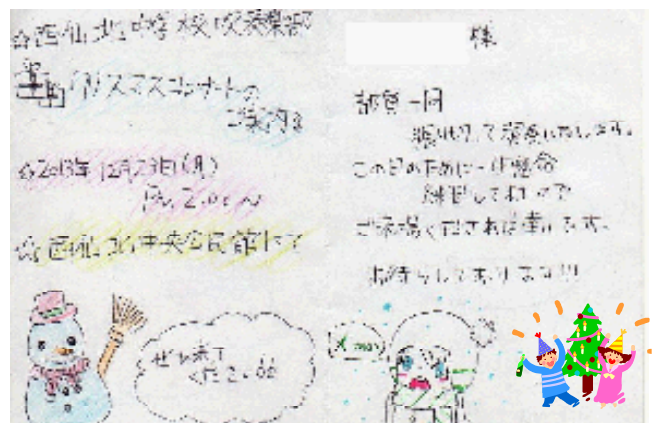 ☆西仙北中学校吹奏楽部
クリスマスコンサートの
ご案内
☆2013年12月23日(月)
PM 2:00〜
☆西仙北中央公民館にて
ぜひ来て
ください
様
部員一同
演奏いたします。
この日のために一生懸命
練習して
ご来場くだされば幸いです。
お待ちしております!!!
X'mas